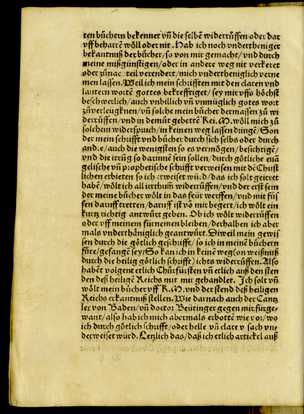 ten büchern bekennet vñ die selbē widerrůffen oder dar
vff beharrē wöll oder nit. Hab ich noch vnderthenīger
bekantniß der bücher, so von mir gemacht, vnd durch
meine mißgünstigen, oder in andere weg nit verkeret
oder zůnac. teil verendert, mich vnderthenigklich verne
men lassen. Weil ich mein schrifften mit den claren vnd
lautern worte gottes bekrefftiget, sey mir vffs höchst
beschwerlich, auch vnbillich vñ vnmüglich gottes wort
zů verleügknen, vñ solche mein bücher dermassen zů wi
derrůffen, vnd in demůt gebettē K. M. wöll mich zů
solchem widerspruch, in keinen weg lassen dringē, Son
der mein schrifft vnd bücher durch sich selbs oder durch
andere, auch die wenigsten so es vermögen, besichtigē,
vnd die irrüg so darinnē sein sollen, durch götliche euā
gelische vñ prophetische schrifft verweisen mit
lichen erbieten so ich das ich solt geirret
habē, wölt ich all irrthum widerrůffen, vnd der erst sein
der meine bücher wölt in das feür werffen, vnd mit füs
sen darauff tretten, darauff ist võ mir begert, ich wölt ein
kurtz richtig antwürt geben. Ob ich wölt widerrůffen
oder vff meinem fürnemen bleiben, derhalben ich aber
mals vnderthöniglich geantwürt. Dieweil mein gewiß
sen durch die götlich geschrifft, so ich in meinē büchern
füre, gefangē sey, So kan ich in keinē weg, on weisung
durch die heilig götlich schrifft, ichts widerrůffen. Also
haben volgens etlich Chürfürsten vñ etlich auß den sten
den deß heiligē Reichs mit mir gehandlet. Ich solt vñ
wölt mein bücher vff K. M. vnd des stend des heiligen
Reichs erkantniß stellen. Wie darnach auch der Cantz
ler von Baden, vñ doctor Beütinger gegen mir fürge
want, also hab ich mich abermals erbottē wie vor, wo
ich durch götlich schrifft, oder helle vñ clare vrsach vn
derweiset würd. Letzlich das, daß ich etlich artickel auß